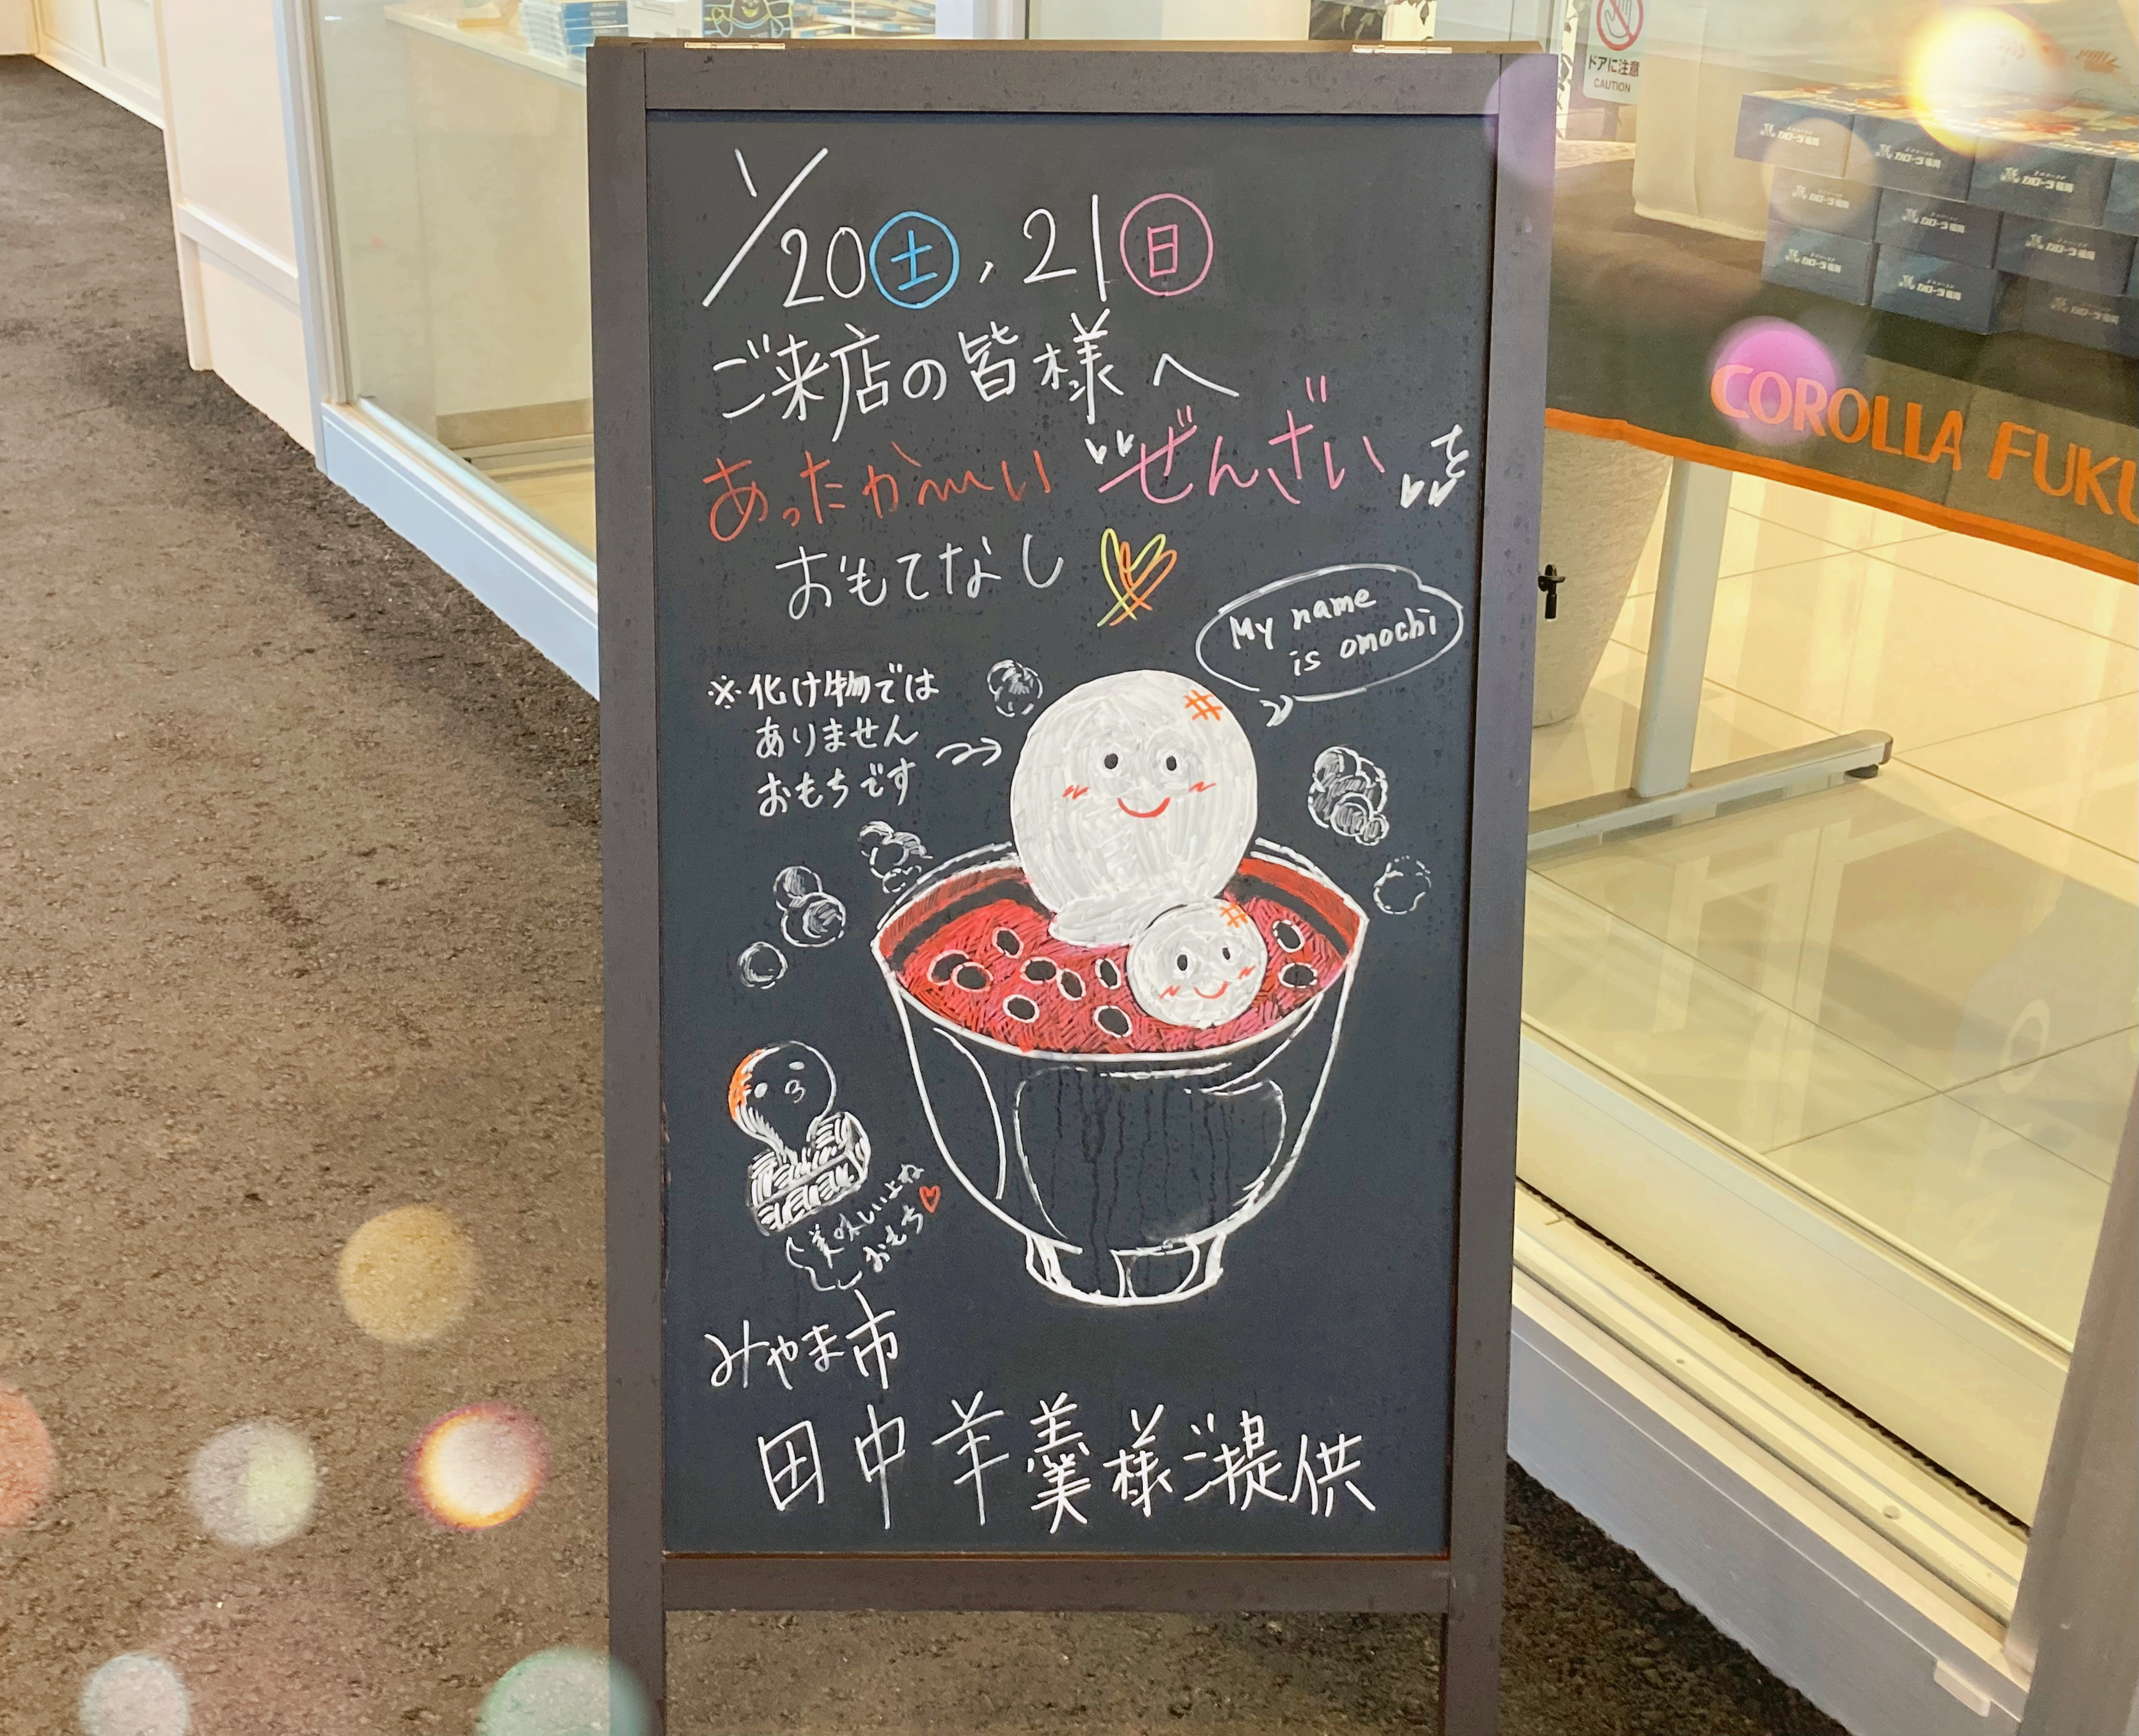 1/20㊏, 21㊐
ご来店の皆様へ
あったか〜い "ぜんざい" を
おもてなし
My name
is omochi
※化け物では
ありません
おもちです
美味しいよね
おもち♡
みやま市
田中羊羹様ご提供
ドアに注意
CAUTION
カローラ福岡
COROLLA FUKU